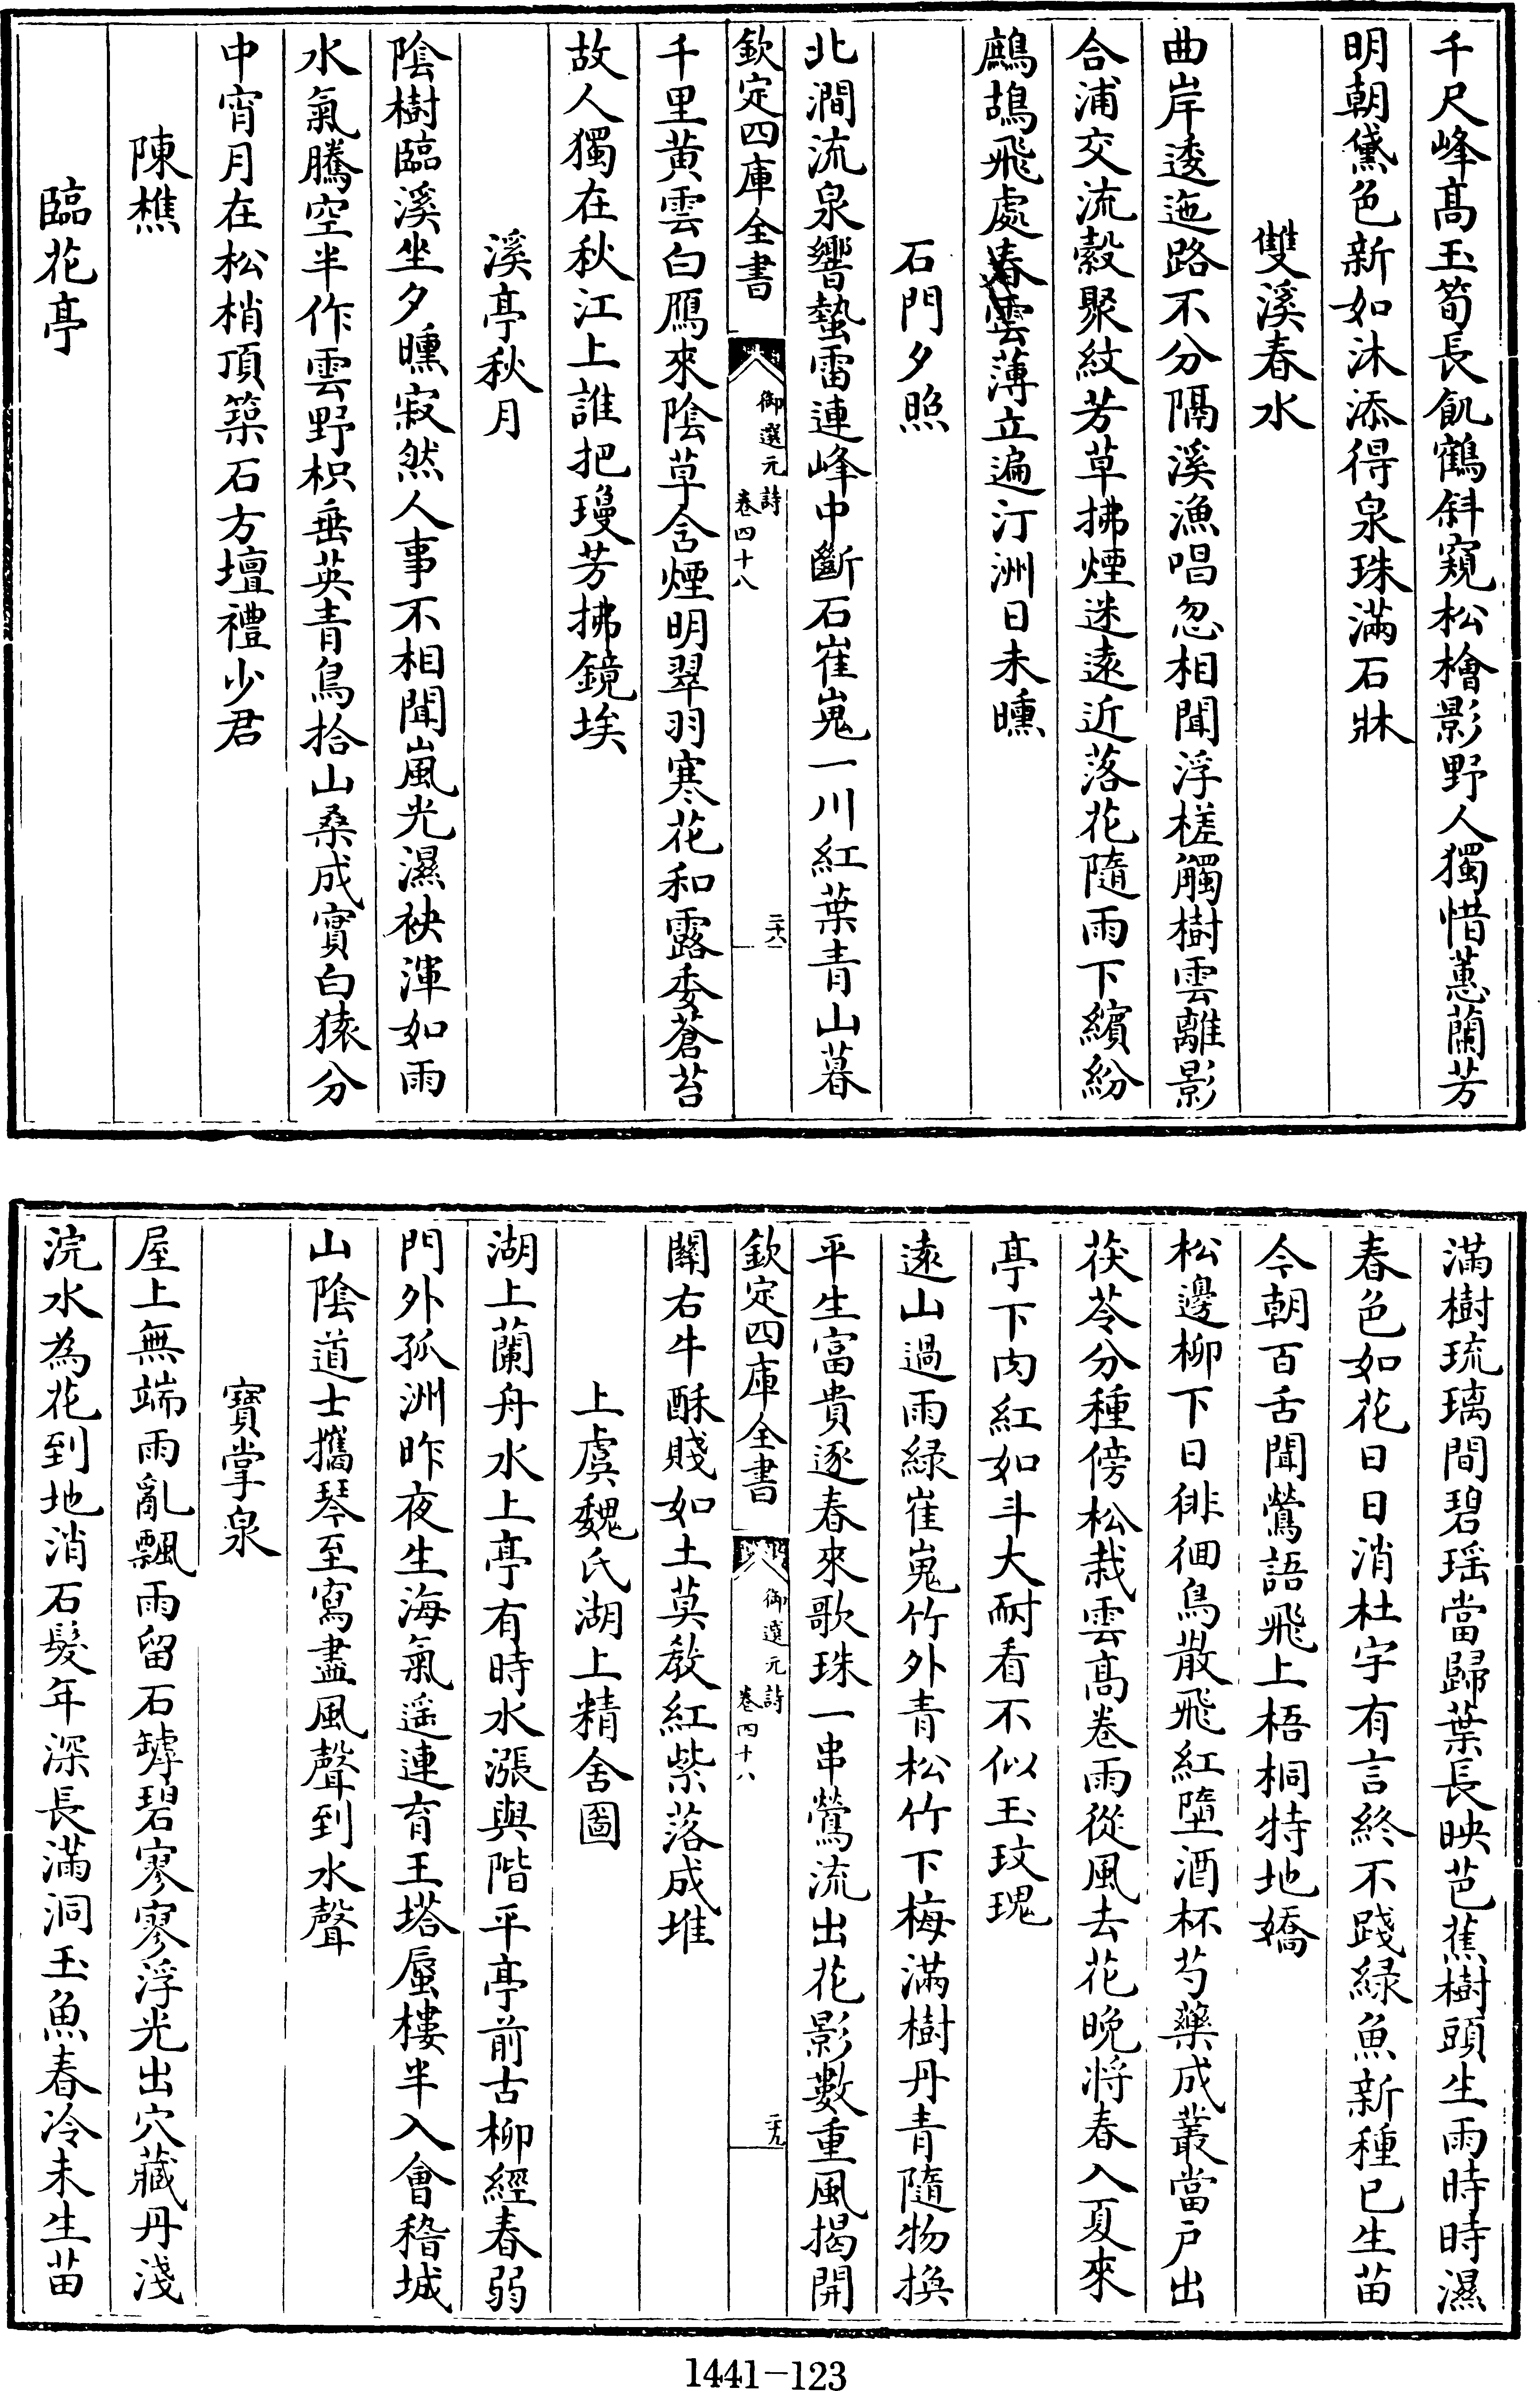 千尺峰髙玉筍長飢鶴斜窺松檜影野人獨惜蕙蘭芳
明朝黛色新如沐添得泉珠滿石牀
雙溪春水
曲岸逶迤路不分隔溪漁唱忽相聞浮槎觸樹雲離影
合浦交流縠聚紋芳草拂煙迷逺近落花隨雨下繽紛
鷓鴣飛處春雲薄立遍汀洲日未曛
石門夕照
北澗流泉響蟄雷連峰中斷石崔嵬一川紅葉青山暮
欽定四庫全書
御選元詩
卷四十八
二十八
千里黄雲白鴈來陰草含煙明翠羽寒花和露委蒼苔
故人獨在秋江上誰把瓊芳拂鏡埃
溪亭秋月
陰樹臨溪坐夕曛寂然人事不相聞嵐光濕袂渾如雨
水氣騰空半作雲野枳垂英青鳥拾山桑成實白猿分
中宵月在松梢頂築石方壇禮少君
陳樵
臨花亭
滿樹琉璃間碧瑶當歸葉長映芭蕉樹頭生雨時時濕
春色如花日日消杜宇有言終不踐緑魚新種已生苗
今朝百舌聞鶯語飛上梧桐特地嬌
松邊柳下日徘徊鳥散飛紅墮酒杯芍藥成叢當戸出
茯苓分種傍松栽雲髙卷雨從風去花晩將春入夏來
亭下肉紅如斗大耐看不似玉玟瑰
逺山過雨緑崔嵬竹外青松竹下梅滿樹丹青隨物換
平生富貴逐春來歌珠一串鶯流出花影數重風揭開
欽定四庫全書
御選元詩
卷四十八
二十九
闗右牛酥賤如土莫教紅紫落成堆
上虞魏氏湖上精舍圖
湖上蘭舟水上亭有時水漲與階平亭前古柳經春弱
門外孤洲昨夜生海氣遥連育王塔蜃樓半入會稽城
山陰道士攜琴至寫盡風聲到水聲
寶掌泉
屋上無端雨亂飄雨留石罅碧寥寥浮光出穴藏丹淺
浣水為花到地消石髮年深長滿洞玉魚春冷未生苗
1441-123